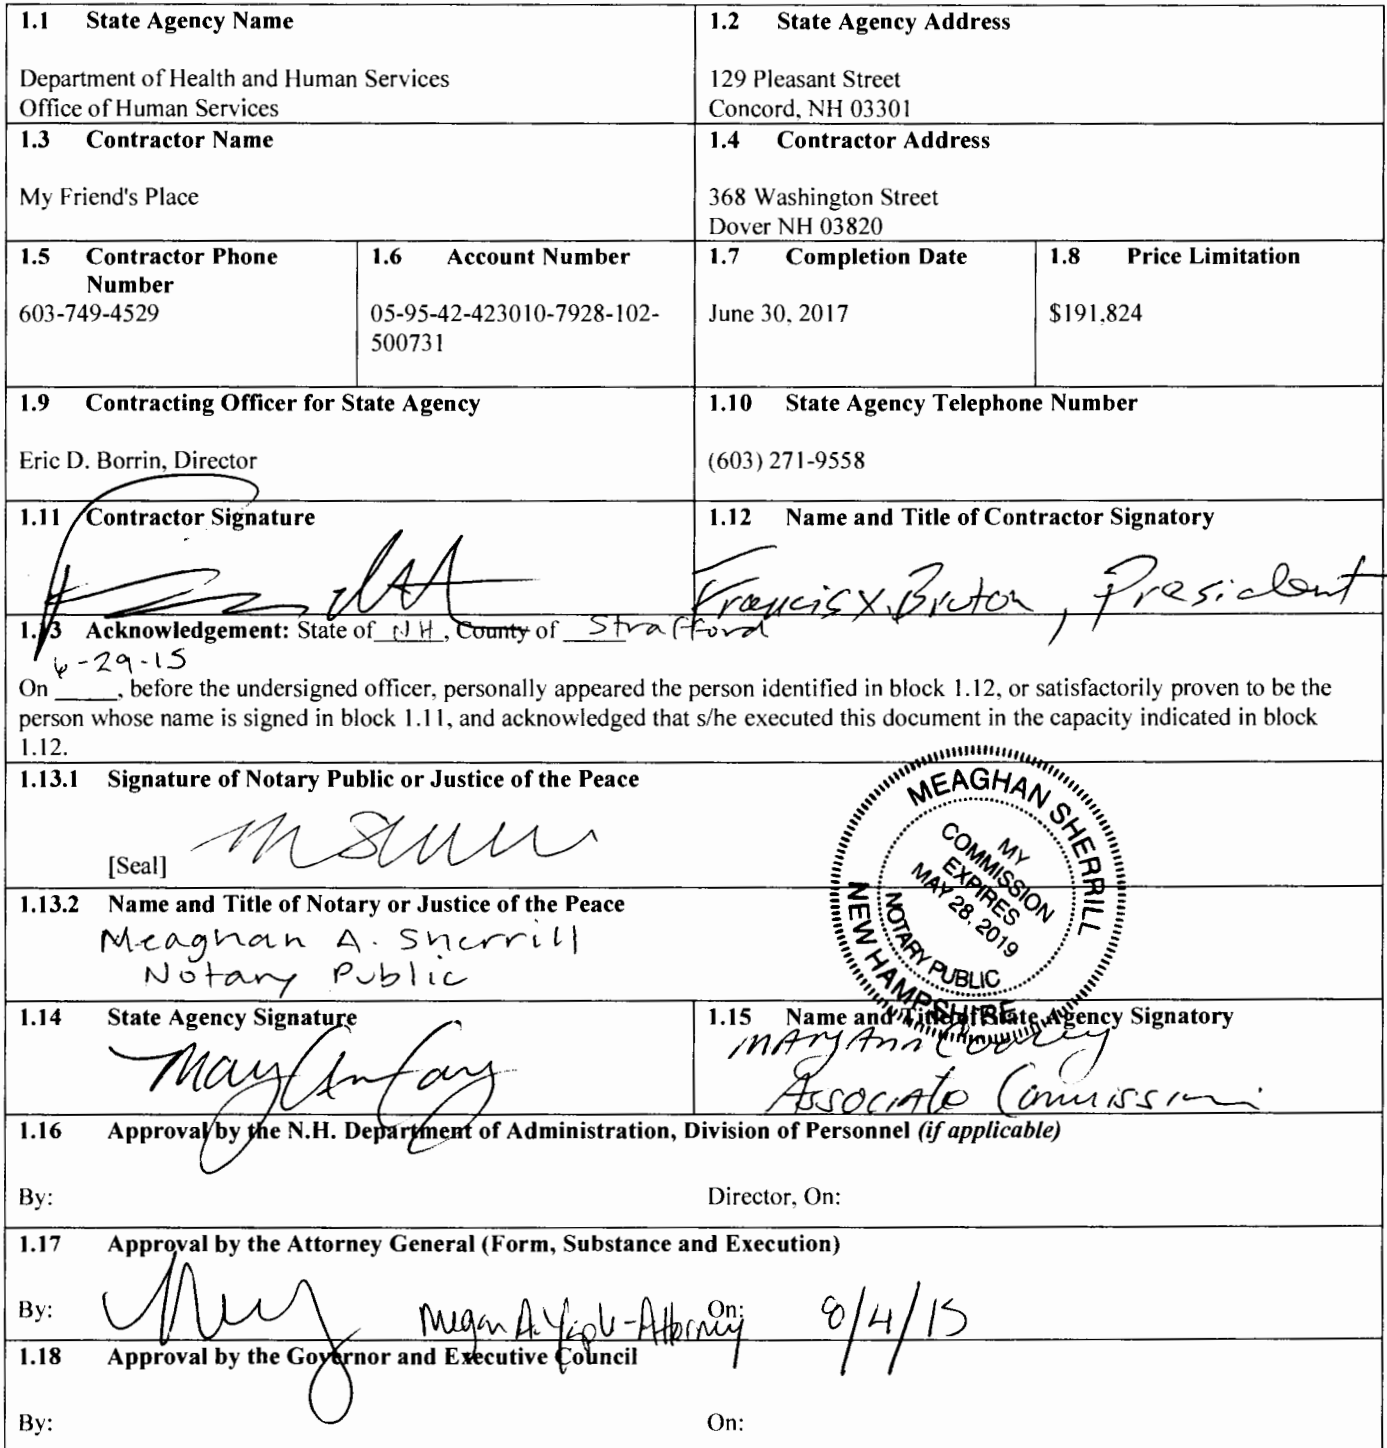 1.1 State Agency Name
Department of Health and Human Services
Office of Human Services
1.2 State Agency Address
129 Pleasant Street
Concord, NH 03301
1.3 Contractor Name
My Friend's Place
1.4 Contractor Address
368 Washington Street
Dover NH 03820
1.5 Contractor Phone
Number
603-749-4529
1.6 Account Number
05-95-42-423010-7928-102-
500731
1.7 Completion Date
June 30, 2017
1.8 Price Limitation
$191,824
1.9 Contracting Officer for State Agency
Eric D. Borrin, Director
1.10 State Agency Telephone Number
(603) 271-9558
1.11 Contractor Signature
1.12 Name and Title of Contractor Signatory
Francis X. Bruton, President
1.13 Acknowledgement: State of NH, County of Strafford
6-29-15
On _____, before the undersigned officer, personally appeared the person identified in block 1.12, or satisfactorily proven to be the
person whose name is signed in block 1.11, and acknowledged that s/he executed this document in the capacity indicated in block
1.12.
1.13.1 Signature of Notary Public or Justice of the Peace
[Seal]
MEAGHAN SHERRILL
MY
COMMISSION
EXPIRES
MAY 28, 2019
NOTARY PUBLIC
NEW HAMPSHIRE
1.13.2 Name and Title of Notary or Justice of the Peace
Meaghan A. Sherrill
Notary Public
1.14 State Agency Signature
1.15 Name and Title of State Agency Signatory
Mary Ann Cooney
Associate Commissioner
1.16 Approval by the N.H. Department of Administration, Division of Personnel (if applicable)
By: Director, On:
1.17 Approval by the Attorney General (Form, Substance and Execution)
By: Megan A. - Attorney On: 8/4/15
1.18 Approval by the Governor and Executive Council
By: On: